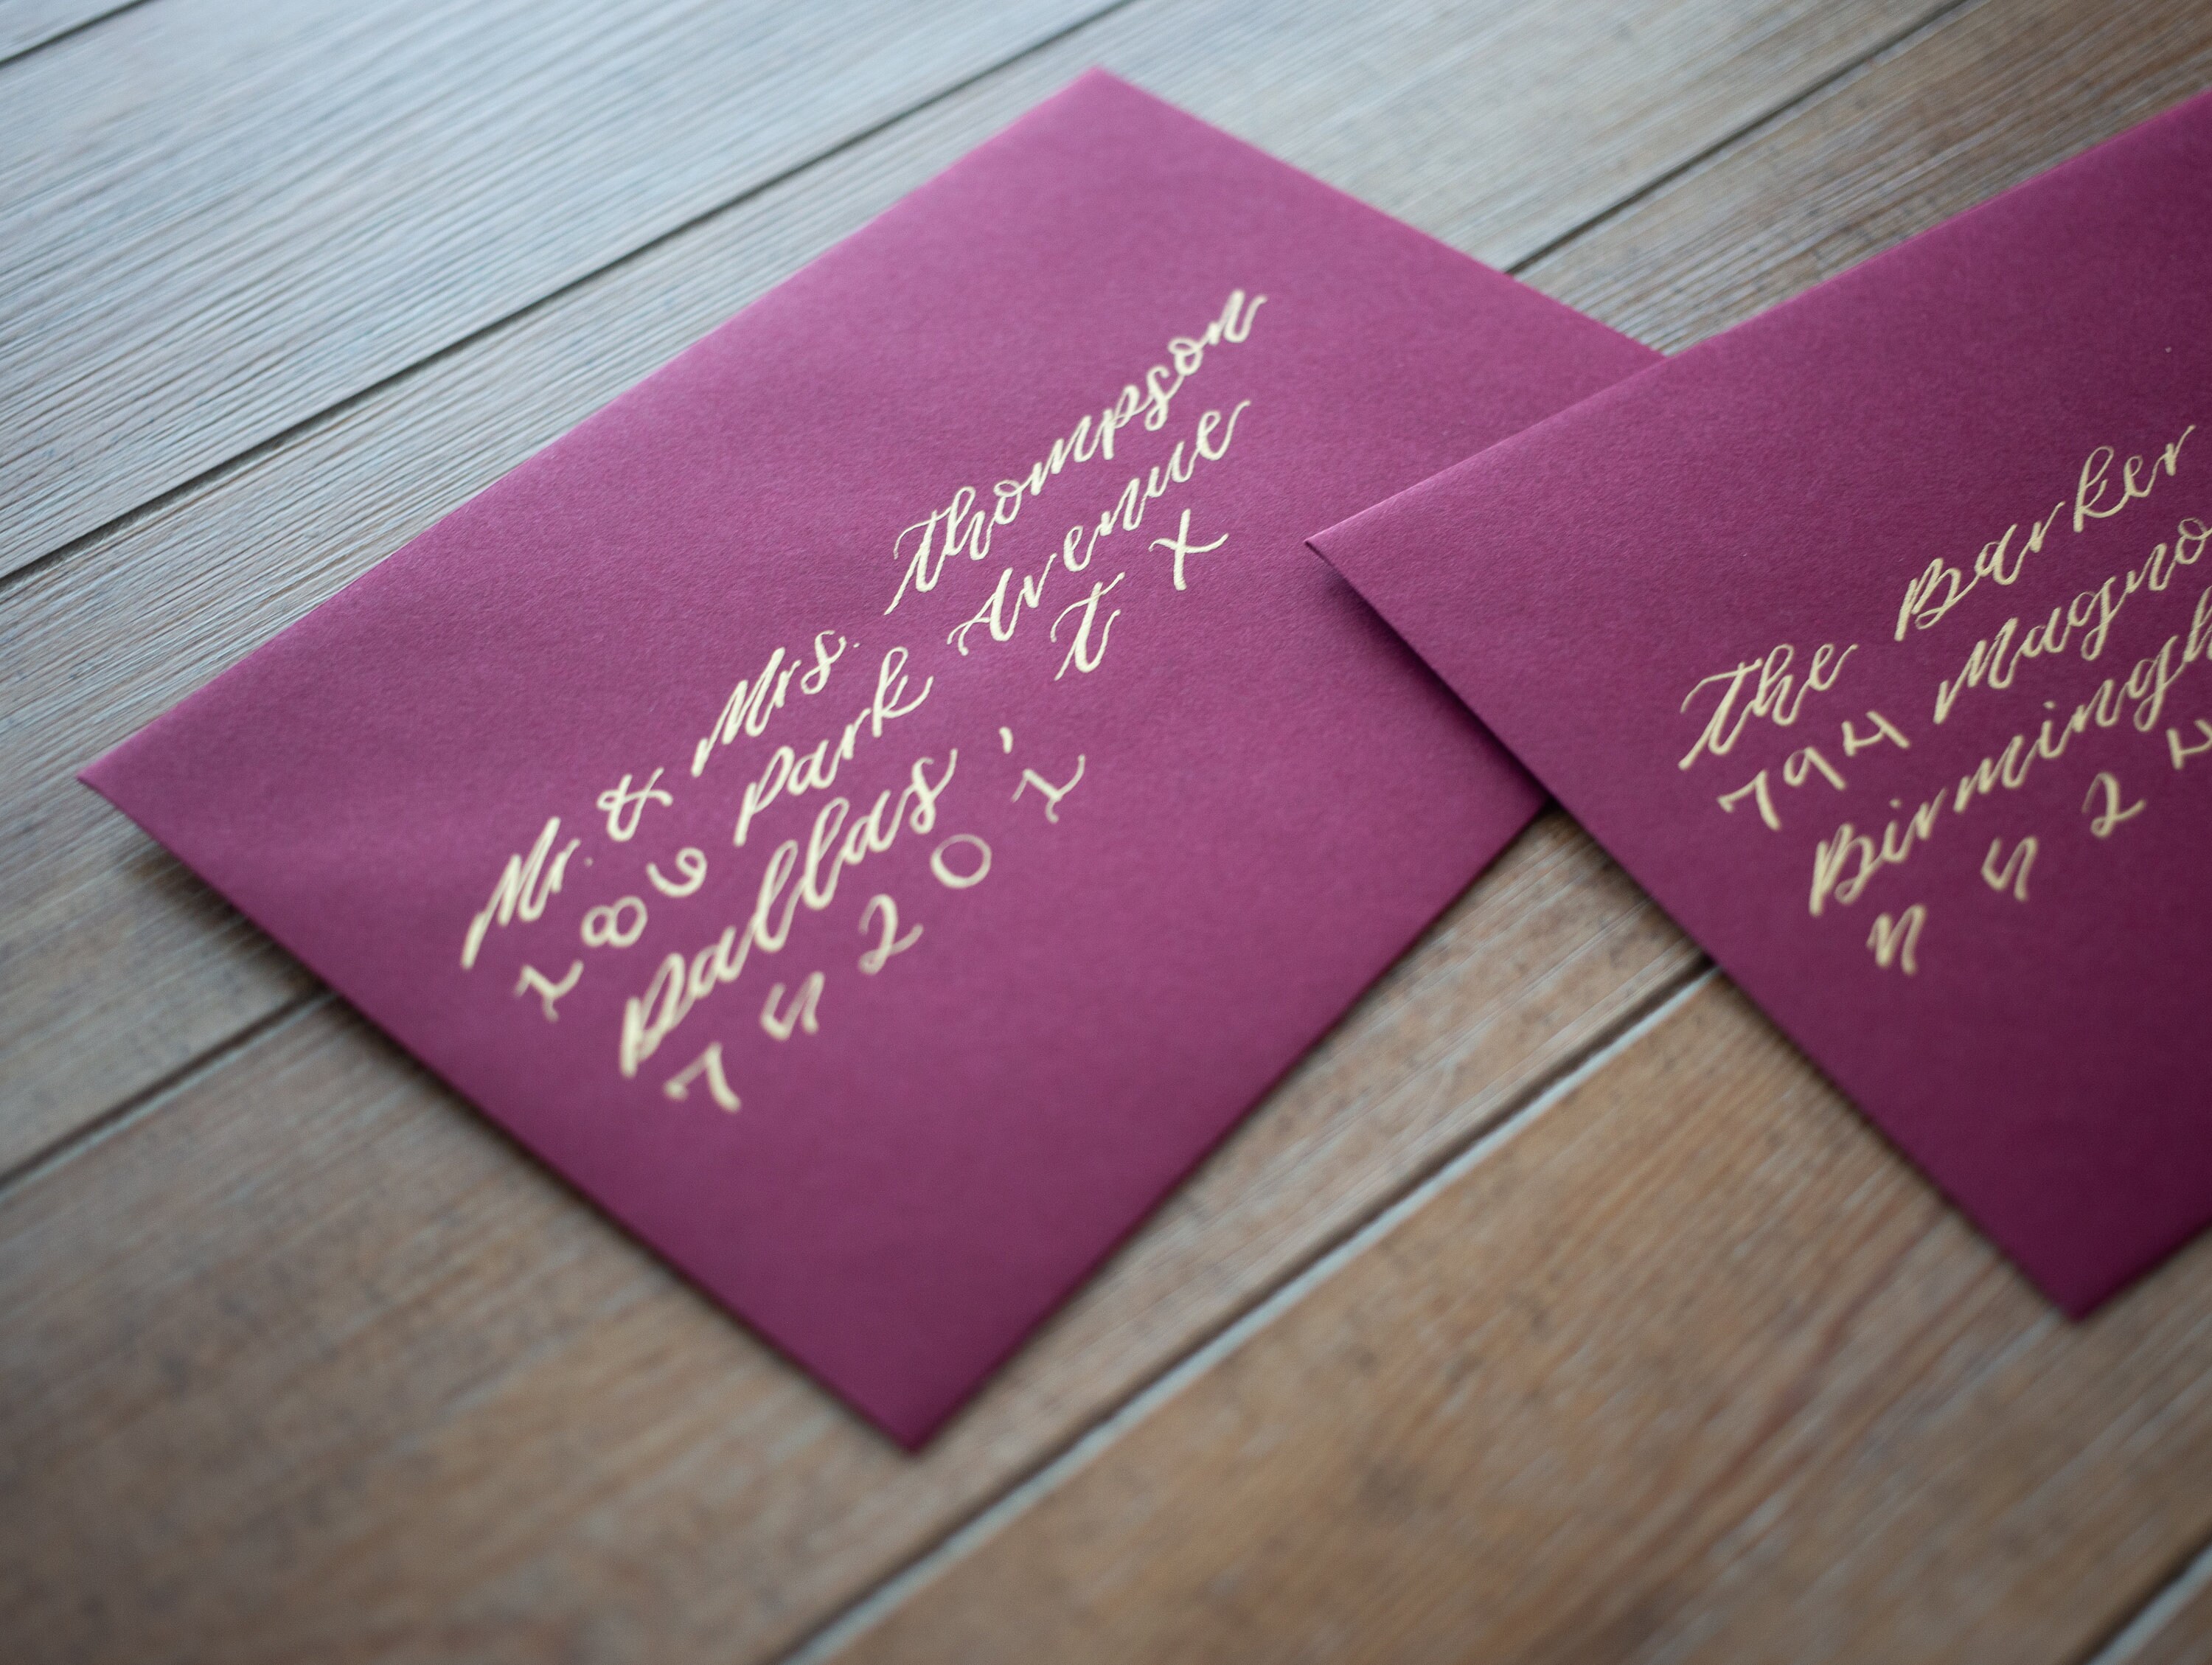 Mr. & Mrs. Thompson
186 Park Avenue
Dallas, TX
75201
The Barker
794 Magno
Birmingh